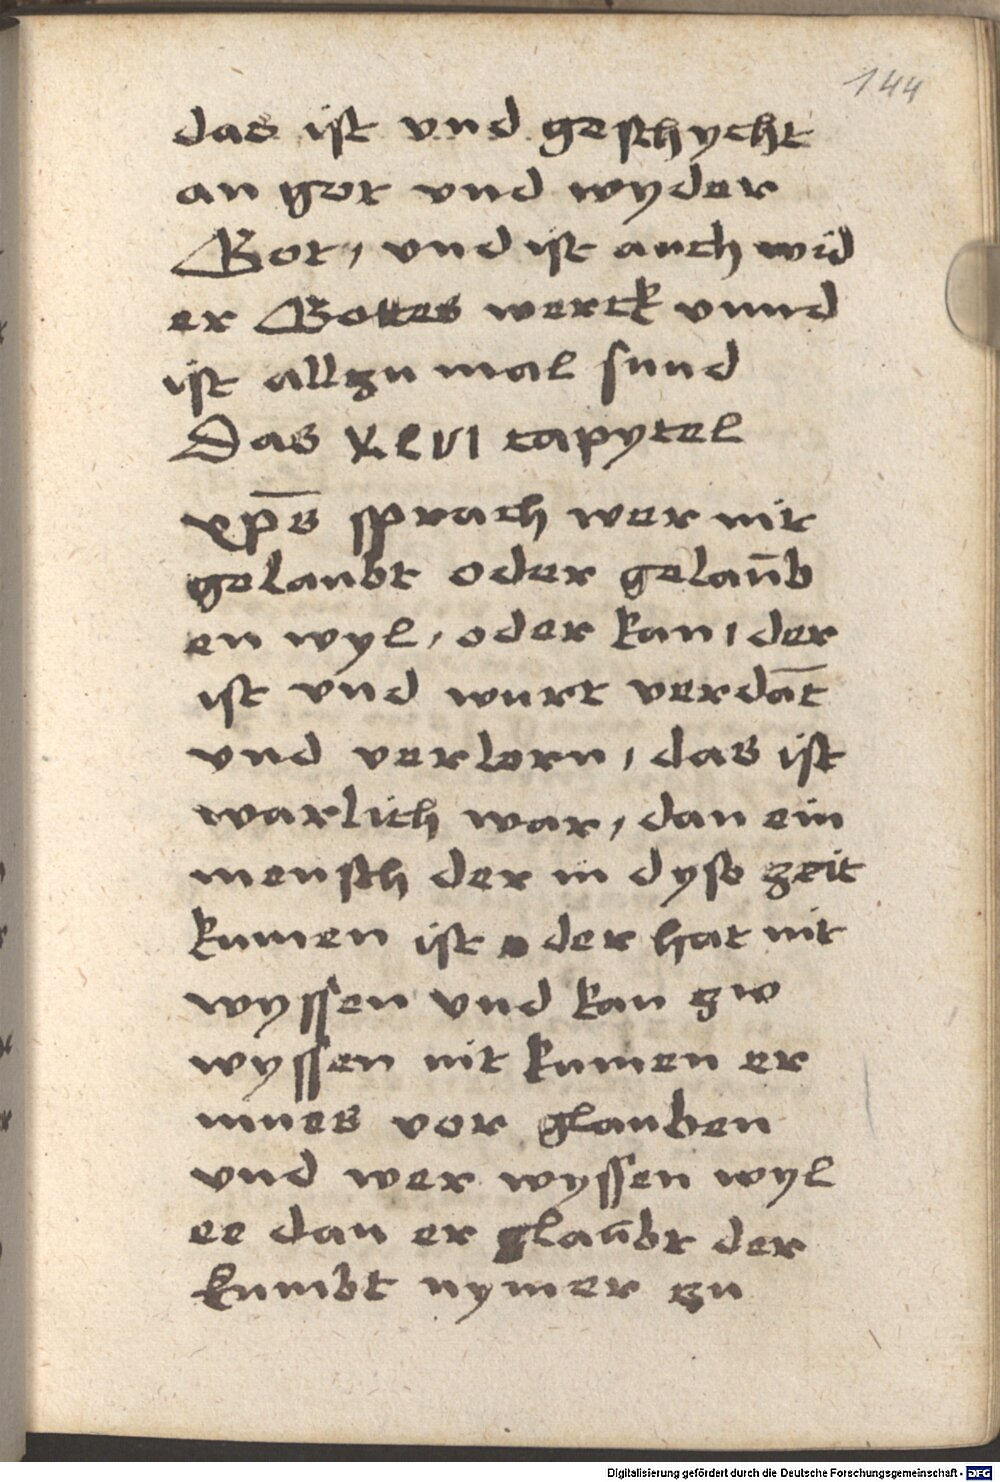 144
das ist vnd geschycht
an got vnd wyder
Got, vnd ist auch wid
er Gottes werck vnnd
ist allzu mal sund
Das XLVI capytel
xp̄s sprach wer nit
gelaubt oder gelaūb
en wyl, oder kan, der
ist vnd wurt verdāt
vnd verlorn, das ist
warlich war, dan ein
mensch der in dyse zeit
kumen ist der hat nit
wyssen vnd kan zw
wyssen nit kumen er
mues vor glauben
vnd wer wyssen wyl
ee dan er glaūbt der
kumbt nymer zu
Digitalisierung gefördert durch die Deutsche Forschungsgemeinschaft - DFG